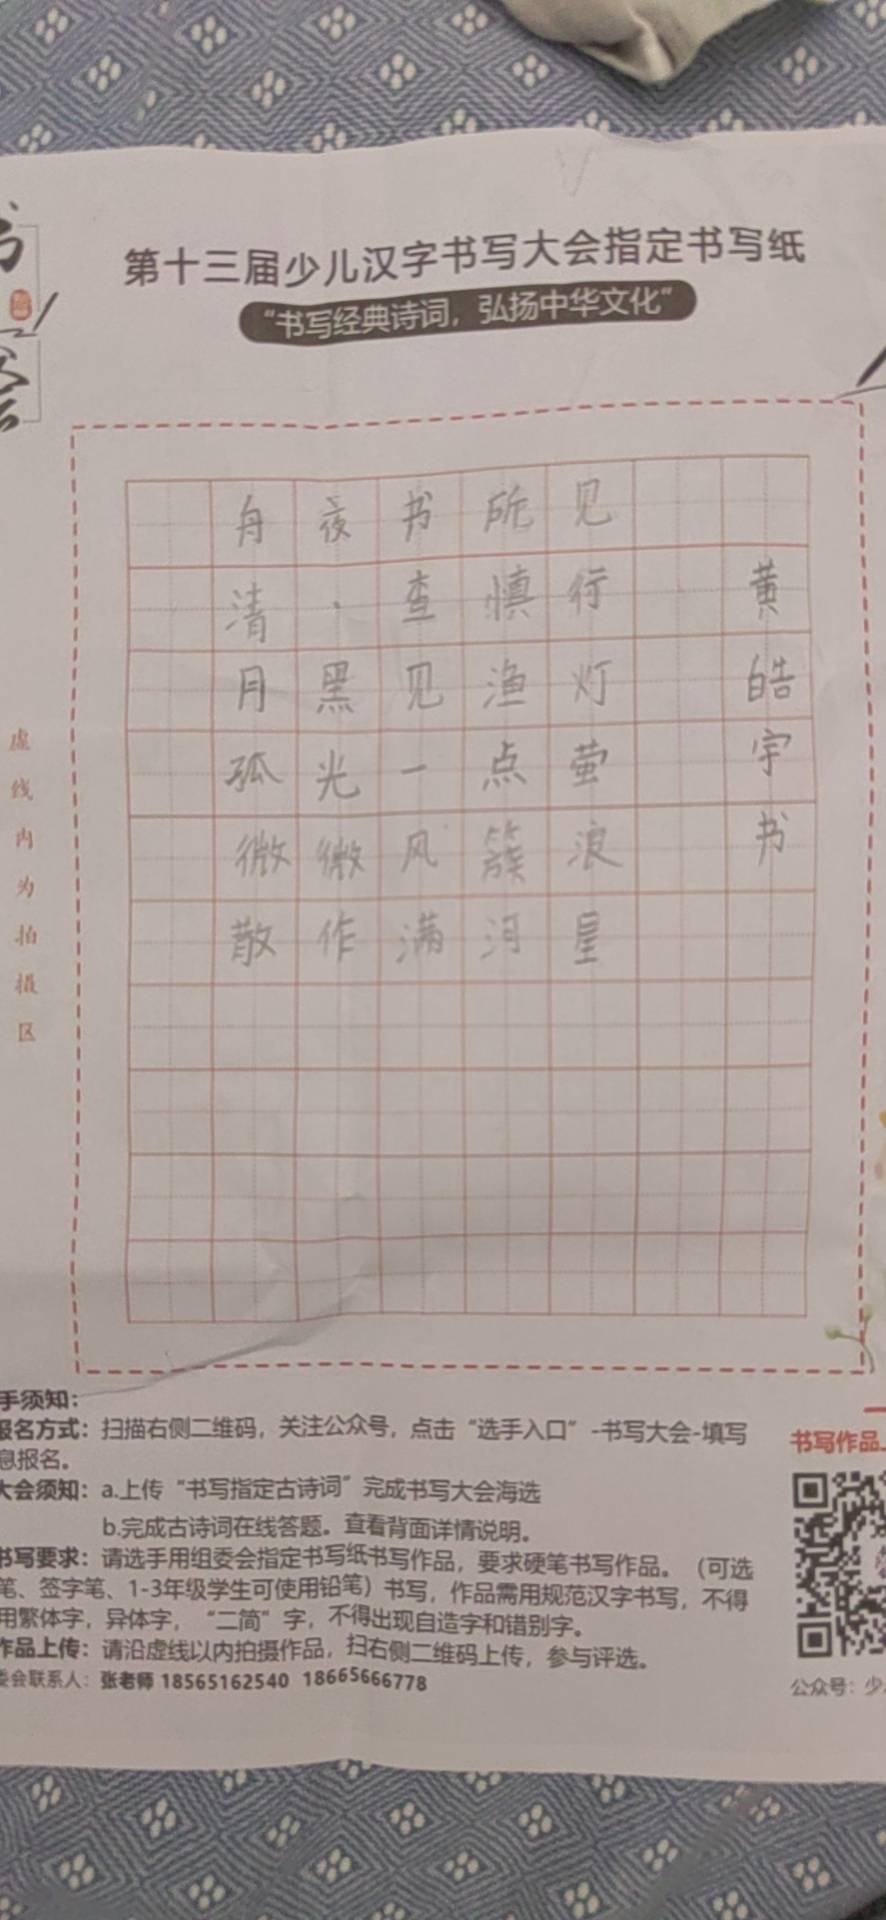 第十三届少儿汉字书写大会指定书写纸
“书写经典诗词，弘扬中华文化”
舟夜书所见
清·查慎行
月黑见渔灯
孤光一点萤
微微风簇浪
散作满河星
黄皓宇书
虚线内为拍摄区
手须知：
报名方式：扫描右侧二维码，关注公众号，点击“选手入口”-书写大会-填写
息报名。
大会须知：a.上传“书写指定古诗词”完成书写大会海选
b.完成古诗词在线答题。查看背面详情说明。
书写要求：请选手用组委会指定书写纸书写作品，要求硬笔书写作品。（可选
笔、签字笔、1-3年级学生可使用铅笔）书写，作品需用规范汉字书写，不得
用繁体字，异体字，“二简”字，不得出现自造字和错别字。
作品上传：请沿虚线以内拍摄作品，扫右侧二维码上传，参与评选。
委会联系人：张老师 18565162540 18665666778
书写作品
公众号：少